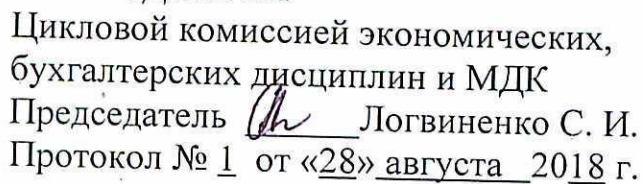 Цикловой комиссией экономических,
бухгалтерских дисциплин и МДК
Председатель Логвиненко С. И.
Протокол № 1 от «28» августа 2018 г.